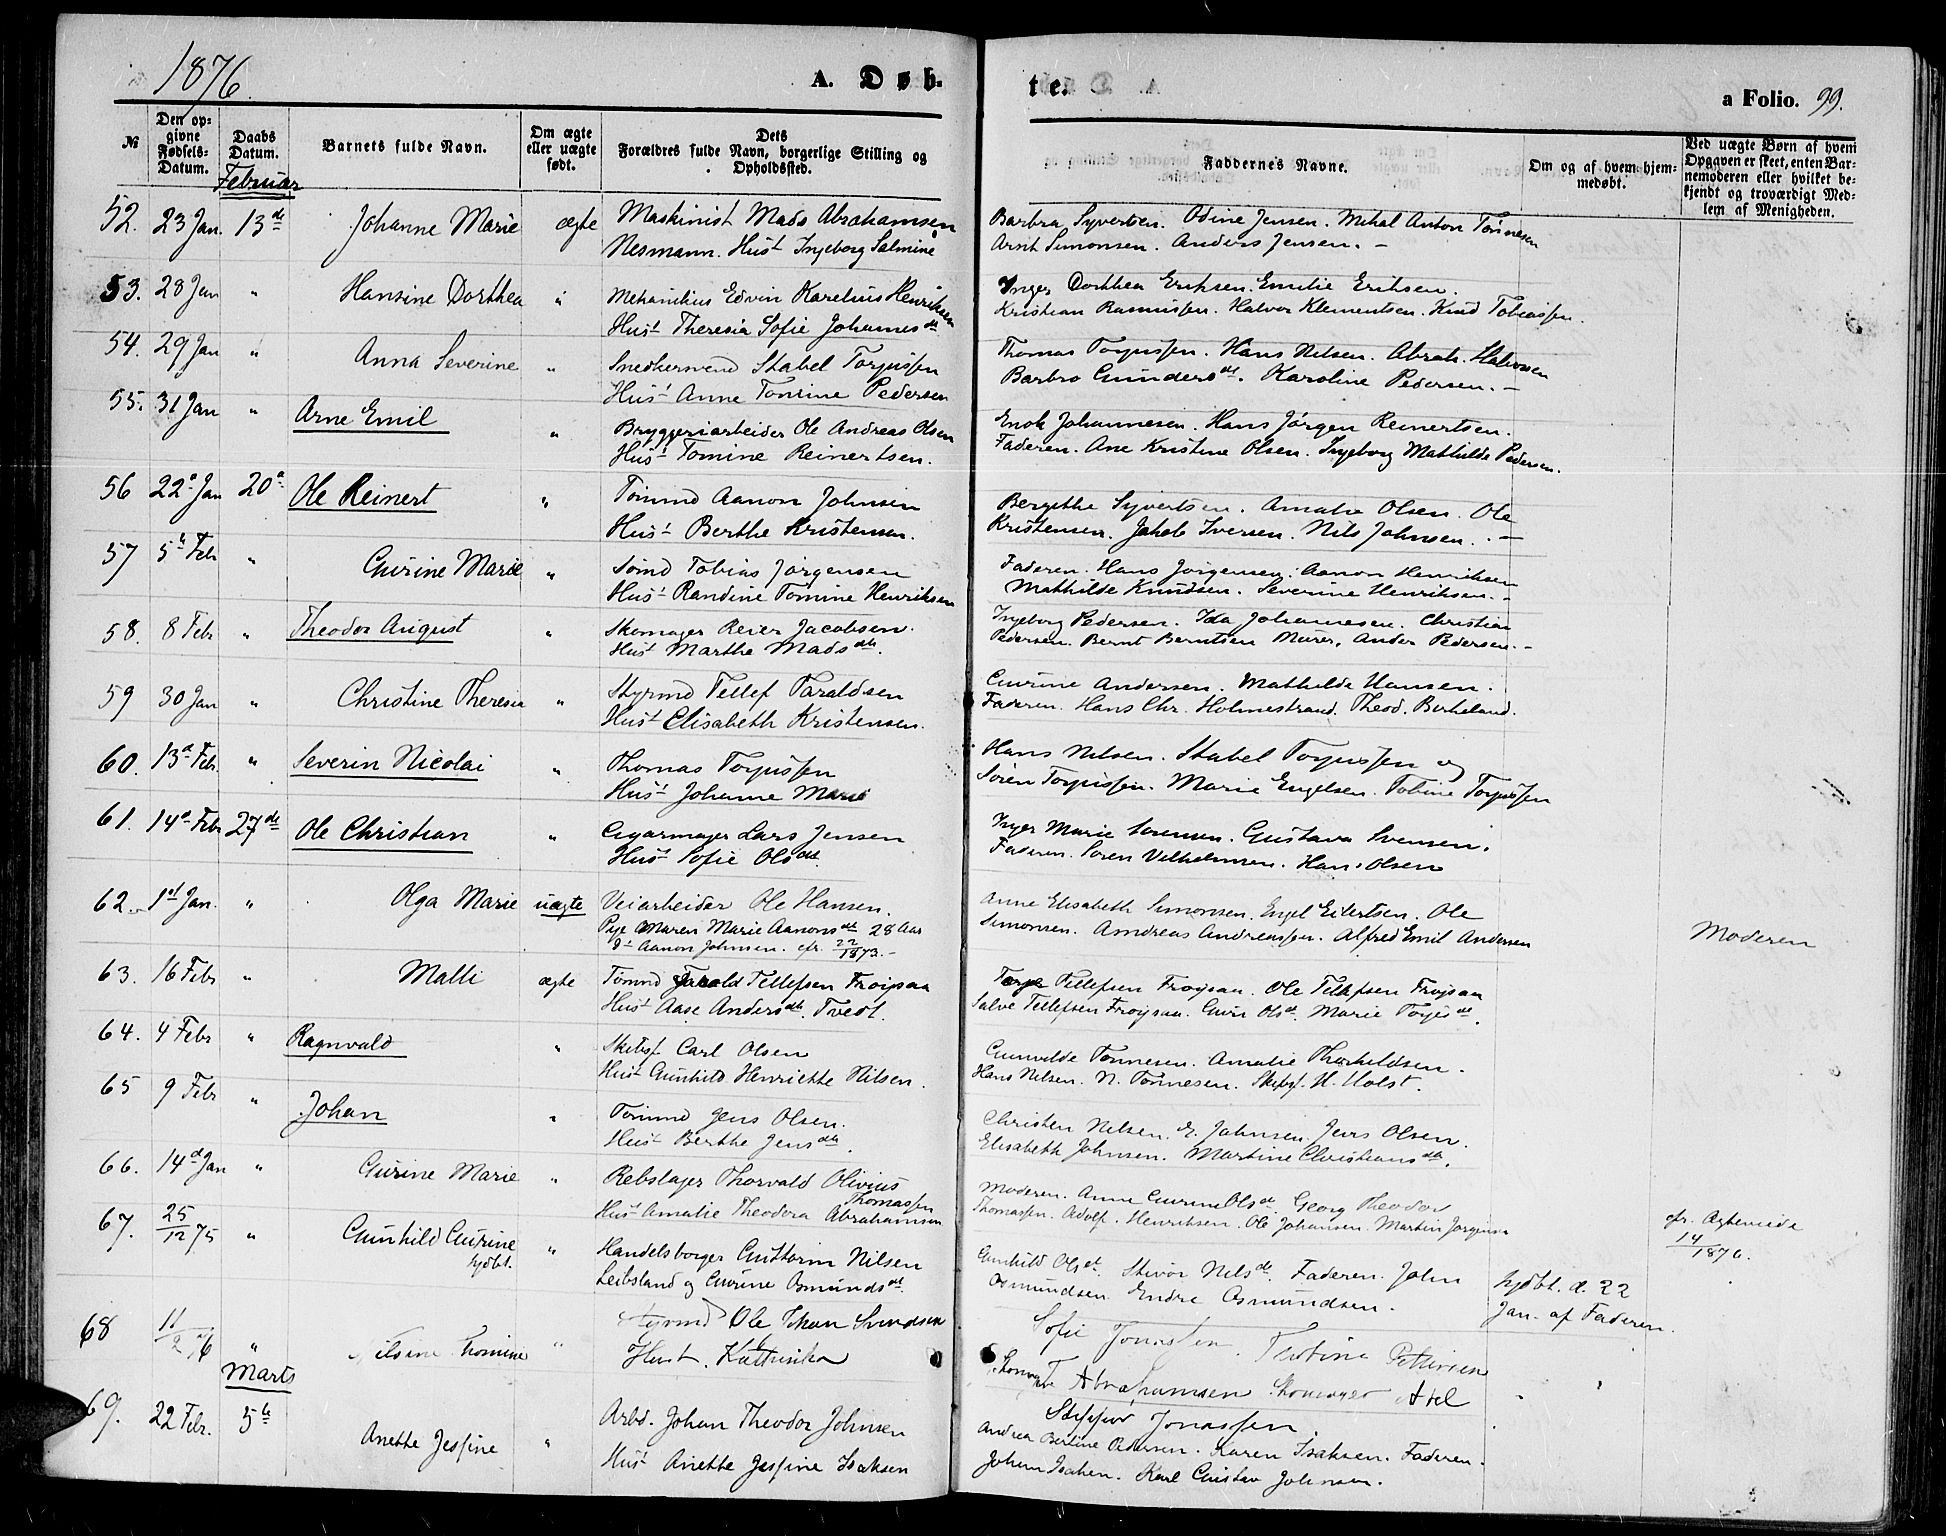 1876.
A. Døb-
te.
a Folio. 99.
№
Den op-
givne
Fødsels-
Datum.
Daabs
Datum.
Barnets fulde Navn.
Om ægte
eller uægte
født.
Dets
Forældres fulde Navn, borgerlige Stilling og
Opholdssted.
Faddernes Navne.
Om og af hvem hjem-
medøbt.
Ved uægte Børn af hvem
Opgaven er skeet, enten Bar-
nemoderen eller hvilket be-
kjendt og troværdigt Med-
lem af Menigheden.
Februar
52. 23 Jan. 13de Johanne Marie ægte Maskinist Mads Abrahamsen
Nesmann. Hust Ingeborg Salmine
Barbra Syvertsen. Odine Jensen. Mikal Anton Tønnesen
Arnt Simonsen. Anders Jensen. -
53. 28 Jan " Hansine Dorthea " Mekanikus Edvin Karelius Henriksen
Hust Theresia Sofie Johannesdt
Inger Dorthea Eriksen. Emilie Eriksen.
Kristian Rasmussen. Halvor Klementsen. Knud Tobiassen.
54. 29 Jan " Anna Severine " Snedkersvend Stabel Torjussen
Hust Anne Tomine Pedersen
Thomas Torjussen. Hans Nilsen. Abrah. Halvorsen
Barbro Gundersdt. Karoline Pedersen. -
55. 31 Jan " Arne Emil " Bryggeriarbeider Ole Andreas Olsen
Hust Tomine Reinertsen.
Enok Johannesen. Hans Jörgen Reinertsen.
Faderen. Ane Kristine Olsen. Ingeborg Mathilde Pedersen.
56 22d Jan 20d Ole Reinert " Tömmd Aanon Johnsen
Hust Berthe Kristensen.
Bergithe Syvertsen. Amalie Olsen. Ole
Kristensen. Jakob Iversen. Nils Johnsen. -
57 5te Febr " Gurine Marie " Sömd Tobias Jörgensen
Hust Randine Tomine Henriksen
Faderen. Hans Jörgensen. Aanon Henriksen
Mathilde Knudsen. Severine Henriksen. -
58. 8 Febr " Theodor August " Skomager Reier Jacobsen.
Hust Marthe Madsdtr.
Ingeborg Pedersen. Ida Johannesen. Christian
Pedersen. Bernt Berntsen Murer, Ander Pedersen. -
59 30 Jan " Christine Theresia " Styrmd Tellef Taraldsen
Hust Elisabeth Kristensen.
Gurine Andersen. Mathilde Hansen.
Faderen. Hans Chr. Holmestrand. Theod. Birkeland.
60. 13d Febr. " Severin Nicolai " Thomas Torjussen
Hust Johanne Marie
Hans Nilsen. Stabel Torjussen og
Sören Torjussen. Marie Engelsen. Tobine Torjussen
61. 14d Febr 27de Ole Christian " Cigarmager Lars Jensen
Hust Sofie Olsdt.
Inger Marie Sorensen. Gustava Svensen.
Faderen. Soren Vilhelmsen. Hans Olsen
62. 1st Jan. " Olga Marie uægte Veiarbeider Ole Hansen.
Pige Maren Marie Aanonsdt 28 Aar
Aanon Johnsen. cfr. 22/1873. -
Anne Elisabeth Simonsen. Engel Eilertsen. Ole
Simonsen. Andreas Andreassen. Alfred Emil Andersen
Moderen
63. 16 Febr " Malli ægte Tömmd Tarald Tellefsen Fröisaa
Hust Aase Andersdt. Tvedt.
Torje Tellefsen Fröysaa. Ole Tellefsen Fröjsaa
Salve Tellefsen Fröysaa. Guri Olsdt. Marie Torjesdt.
64. 4 Febr " Ragnvald " Skibsf Carl Olsen
Hust Gunhild Henriette Nilsen.
Gunvilde Tönnesen. Amalie Therkeldsen.
Hans Nilsen. N. Tönnesen. Skibsf. H. Holst.
65 9 Febr " Johan " Tömmd Jens Olsen.
Hust Berthe Jensdtr.
Christen Nilsen. E. Johnsen. Jens Olsen.
Elisabeth Johnsen. Martine Christiansdtr.
66. 14d Jan " Gurine Marie " Rebslager Thorvald Olivius
Thomassen
Hust Amalie Theodora Abrahamsen
Moderen. Anne Gurine Olsdt. Georg Theodor
Thomassen. Adolf Henriksen. Ole Johansen. Martin Jorgensen
cfr. Ægteviede
14/1876.
67. 25/12 75 " Gunhild Gurine
hjdbt.
" Handelsborger Guttorm Nilsen
Leibsland og Gurine Osmundsdt.
Gunhild Olsdt. Stivör Nilsdt. Faderen. John
Osmundsen. Endre Osmundsen.
hjdbt. d. 22
Jan. af Faderen.
68 11/2 76 " Nilsine Thomine " Styrmd Ole Johan Svendsen
Hust. Kathrinka
Sofie Jonassen. Tertine Pettersen
Abrahamsen Skomager Axel
Jonassen.
Marts
69. 22 Febr. 5te Anette Jessine " Arbd. Johan Theodor Johnsen
Hust Anette Jessine Isaksen
Andrea Bertine Pedersen. Karen Isaksen. Faderen.
Johan Isaksen. Karl Gustav Johnsen.